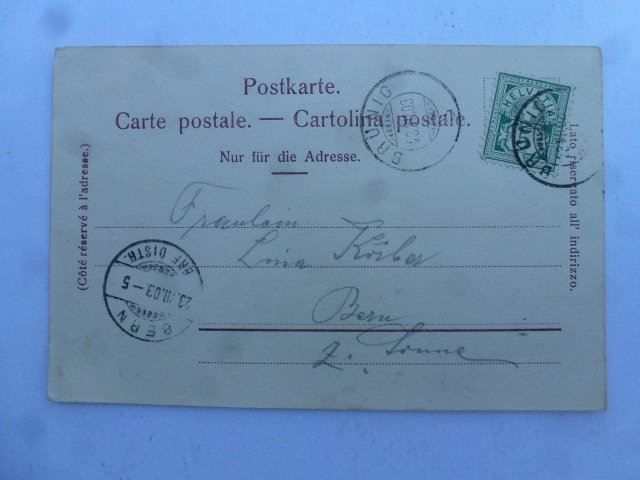 Postkarte.
Carte postale. — Cartolina postale.
Nur für die Adresse.
(Côté réservé à l'adresse.)
Lato riservato all' indirizzo.
HELVETIA
BRÜNIG
BRÜNIG
Fraulein
Lina Körber
Bern
z. Sonne
BERN
BRF. DISTR.
23.VII.03-5